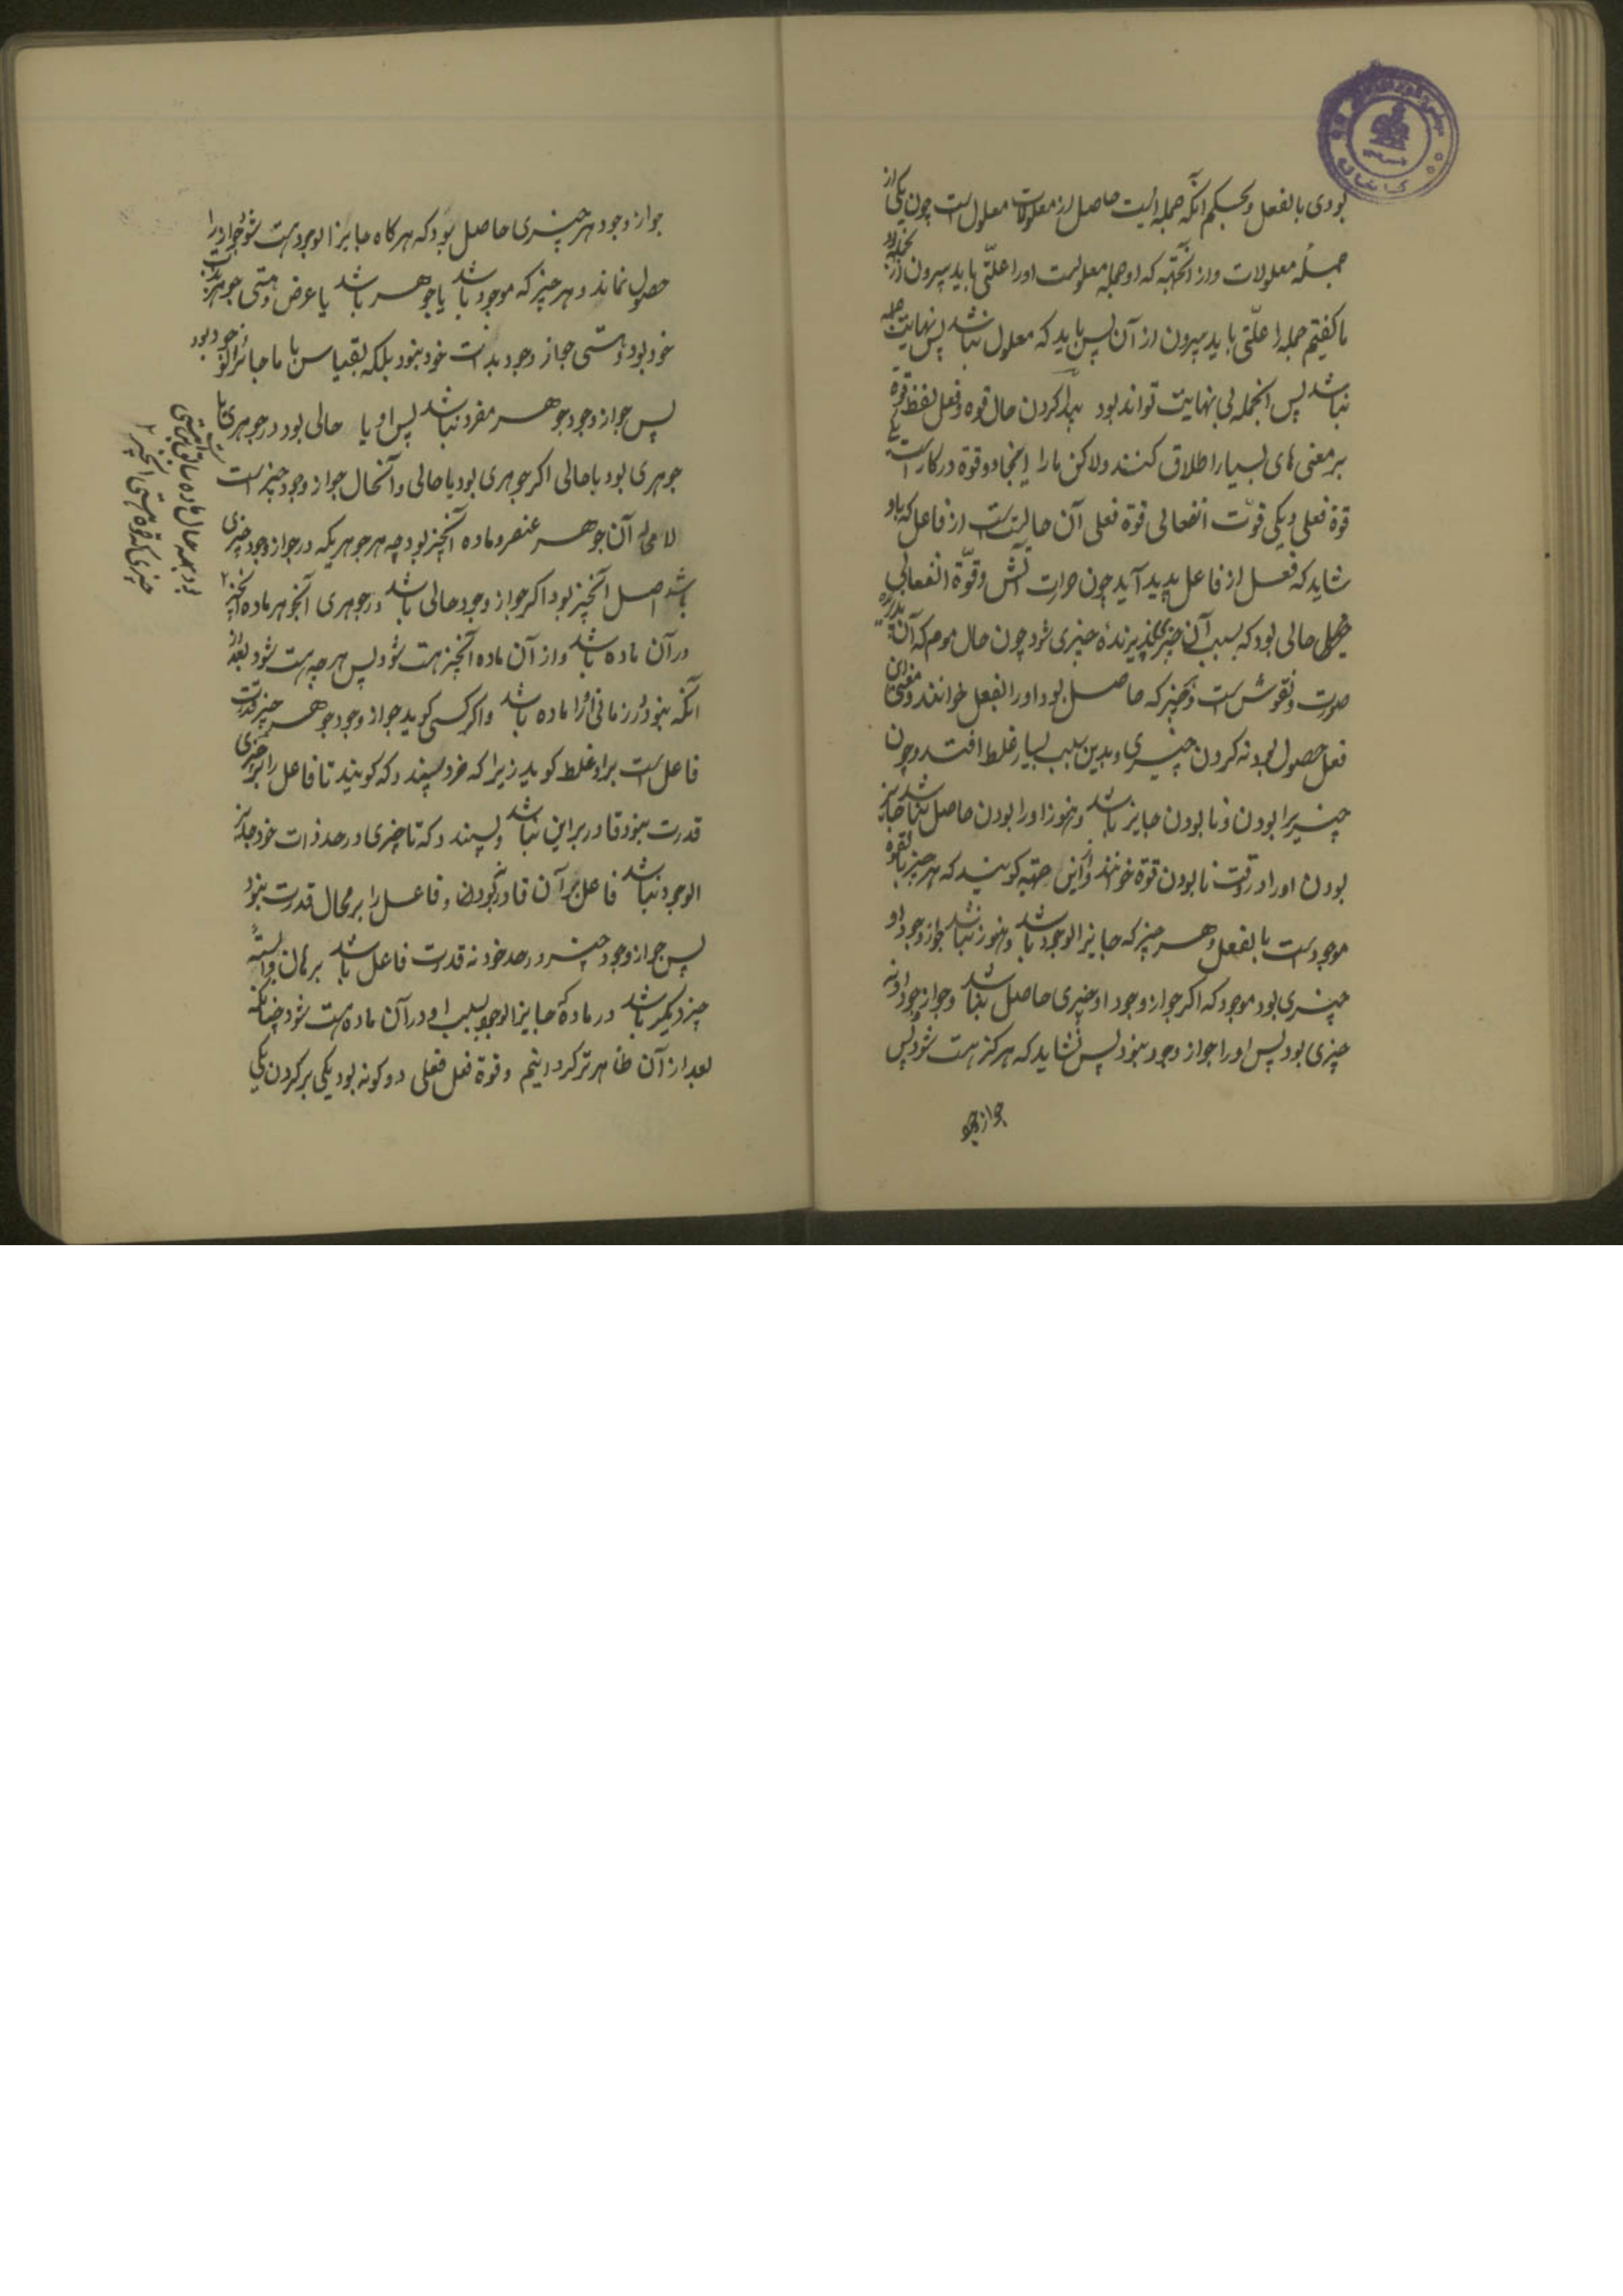 بودی بالفعل و بحکم آنکه جمله ایست حاصل از معلولات معلول است چون یکی از
جمله معلولات و از آنجهة که او جمله معلولست او را علّتی باید بیرون از
ما گفتیم جمله را علّتی باید بیرون از آن پس باید که معلول نباشد پس نهایت جمله
نباشد پس انجمله بی نهایت تواند بود پیدا کردن حال قوه و فعل لفظ قوة
بر معنی های بسیار اطلاق کنند ولاکن ما را اینجا دو قوة در کار است یکی
قوة فعلی و یکی قوّت انفعالی قوة فعلی آن حالیتست از فاعل که باو
شاید که فعل از فاعل پدید آید چون حرارت آتش و قوّة انفعالی
حالی بود که بسبب آن چیزی پذیرندهٔ چیزی شود چون حال موم که آن پذیرنده
صورت و نقوش است و هر چیز که حاصل بود او را بالفعل خوانند و معنی این
فعل حصول بود نه کردن چیزی و بدین سبب بسیار غلط افتد و چون
چیزیرا بودن و نابودن جایز باشد و هنوز او را بودن حاصل نباشد جایز
بودن او را در وقت نابودن قوة خوانند و از این جهة گویند که هر چیز بالقوه
موجودست یا بالفعل و هر چیز که جایز الوجود باشد و هنوز نباشد جواز وجود او
چیزی بود موجود که اگر جواز وجود او چیزی حاصل نباشد و جواز وجود او نه
چیزی بود پس او را جواز وجود نبود پس نشاید که هرگز هست شود پس
جواز وجود
جواز وجود هر چیزی حاصل بود که هرگاه جایز الوجود هست شود جواز او را
حصول نماند و هر چیز که موجود باشد یا جوهر باشد یا عرض و هستی جوهر بذات
خود بود و هستی جواز وجود بذات خود نبود بلکه بقیاس با ما جائز الوجود بود
پس جواز وجود جوهر مفرد نباشد پس او یا حالی بود در جوهری یا
جوهری بود با حالی اگر جوهری بود با حالی و آنحال جواز وجود چیز است
لا محاله آن جوهر عنصر و ماده آنچیز بود چه هر جوهریکه در جواز وجود چیزی
باشد اصل آنچیز بود اگر جواز وجود حالی باشد در جوهری آنجوهر ماده آنچیز
در آن ماده باشد و از آن ماده آنچیز هست شود پس هر چه هست شود بعد از
آنکه نبود در زمانی او را ماده باشد و اگر کسی گوید جواز وجود جوهر چیز قدرت
فاعل است براو غلط گوید زیرا که خرد بپسندد که گویند تا فاعل را بر چیزی
قدرت نبود قادر بر این نباشد و بپسندد که تا چیزی در حد ذات خود جایز
الوجود نباشد فاعل بر آن قادر نبود و فاعل را بر محال قدرت نبود
پس جواز وجود چیز در حد خود نه قدرت فاعل باشد بر آن وابسته
چیز دیگر باشد در مادهٔ جایز الوجود بسبب او در آن ماده هست شود چنانکه
بعد از آن ظاهر تر کرد ایم و قوة فعل فعلی دو گونه بود یکی بر کردن یکی
بود بهمه حال ماده سابق بر هستی
چیزی که قوه هستی آنچیز